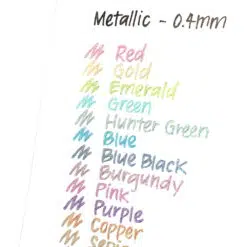 Metallic - 0.4mm
Red
Gold
Emerald
Green
Hunter Green
Blue
Blue Black
Burgundy
Pink
Purple
Copper
Sepia